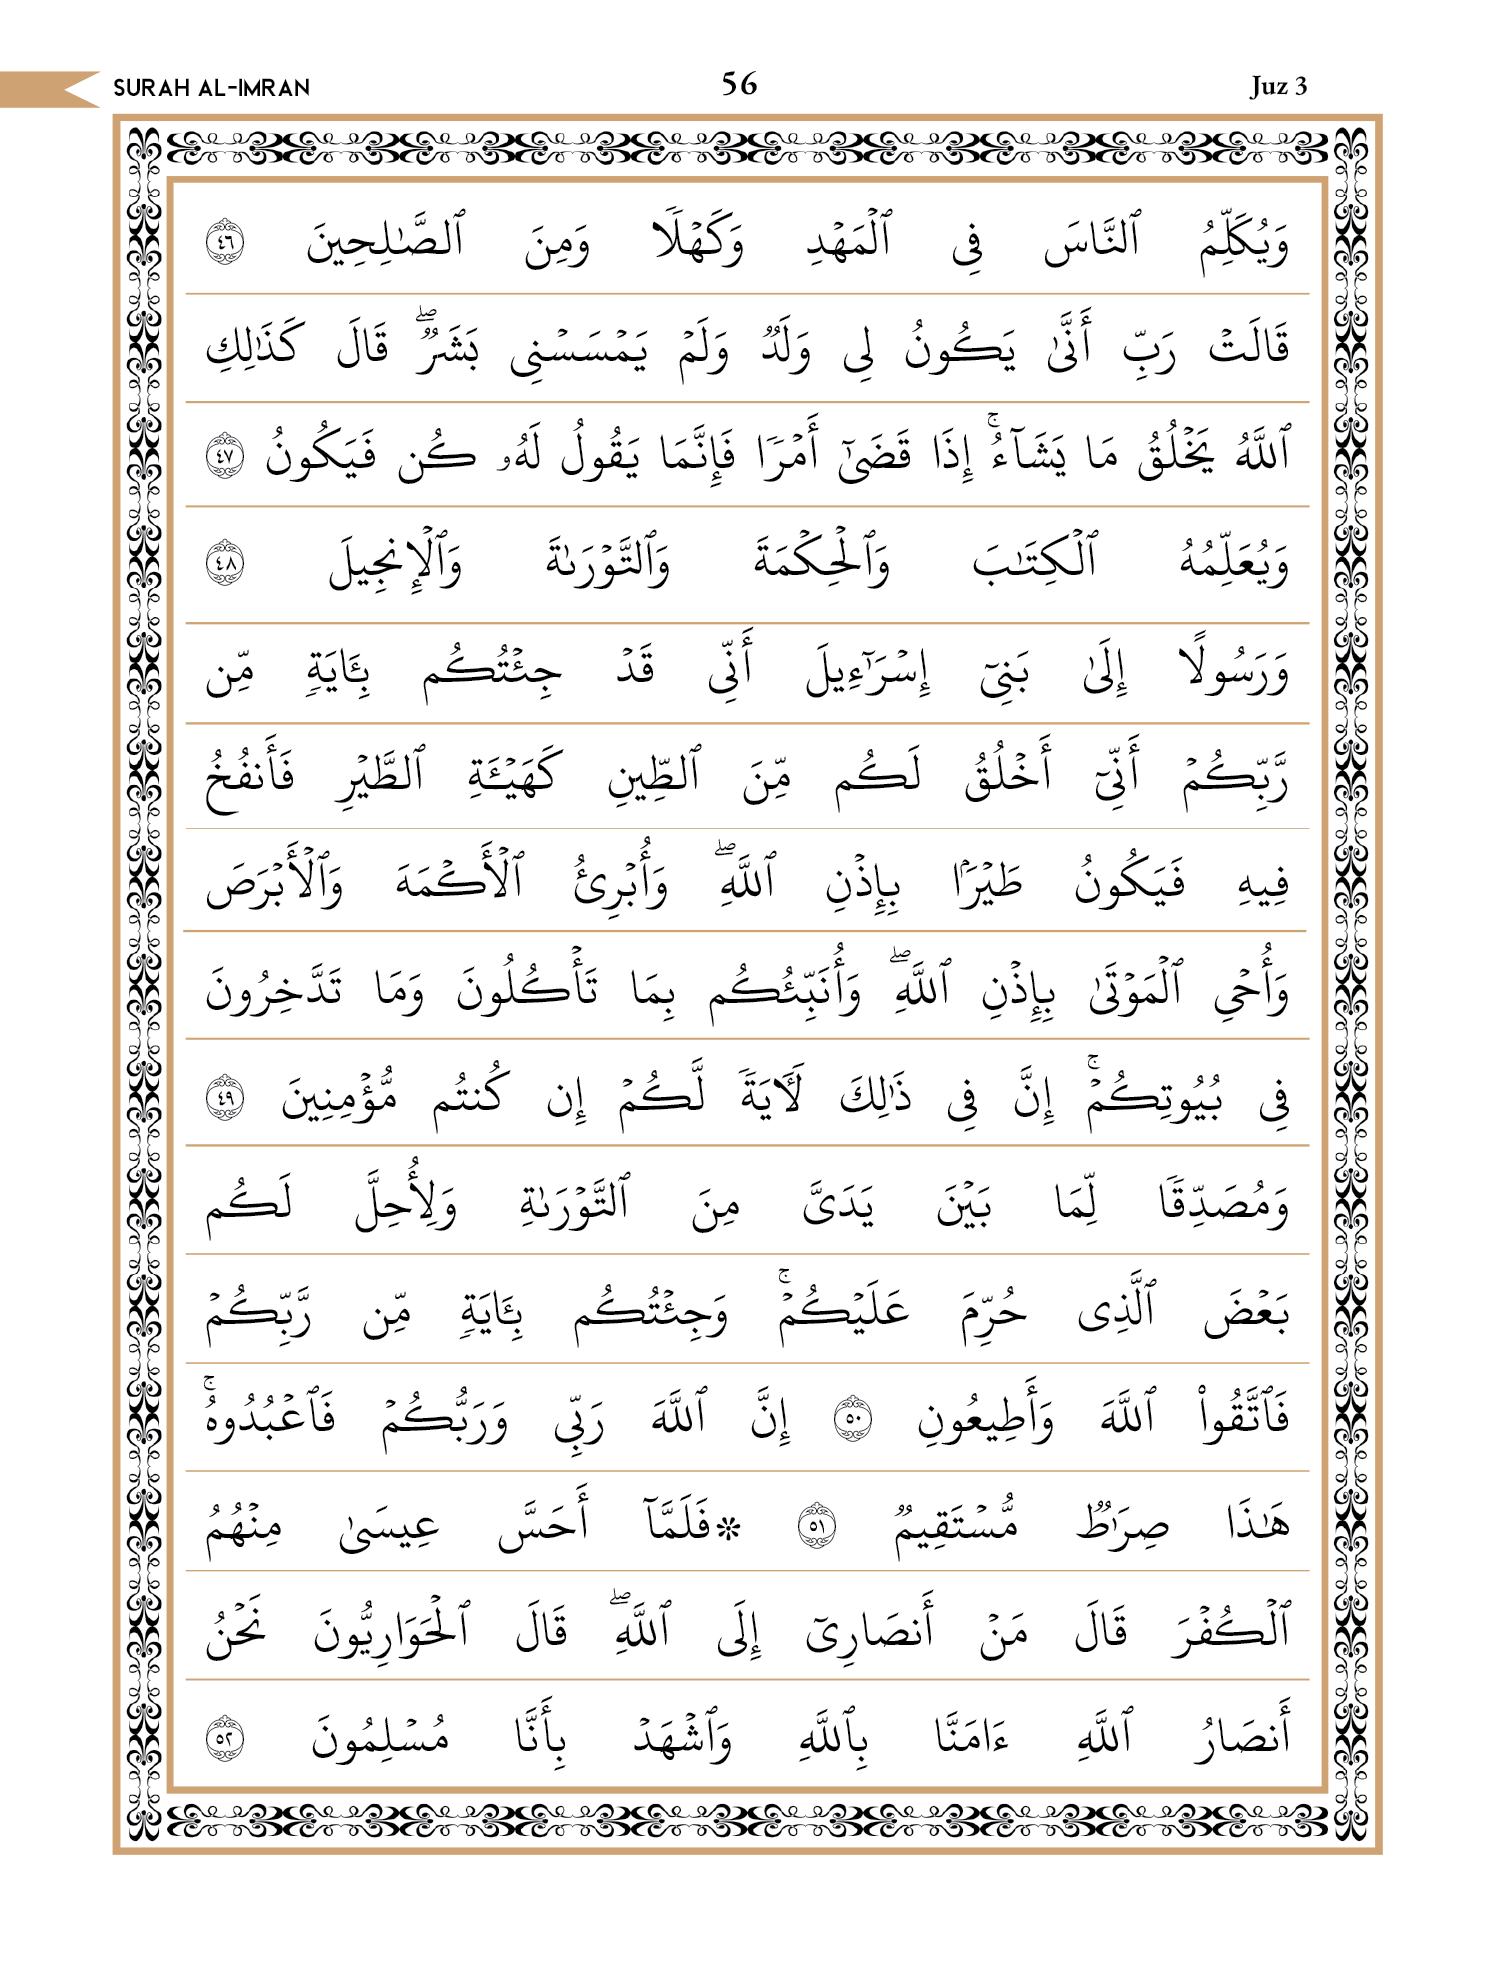 SURAH AL-IMRAN
56
Juz 3
وَيُكَلِّمُ ٱلنَّاسَ فِى ٱلْمَهْدِ وَكَهْلًا وَمِنَ ٱلصَّـٰلِحِينَ ٤٦
قَالَتْ رَبِّ أَنَّىٰ يَكُونُ لِى وَلَدٌ وَلَمْ يَمْسَسْنِى بَشَرٌ ۖ قَالَ كَذَٰلِكِ
ٱللَّهُ يَخْلُقُ مَا يَشَآءُ ۚ إِذَا قَضَىٰٓ أَمْرًا فَإِنَّمَا يَقُولُ لَهُۥ كُن فَيَكُونُ ٤٧
وَيُعَلِّمُهُ ٱلْكِتَـٰبَ وَٱلْحِكْمَةَ وَٱلتَّوْرَىٰةَ وَٱلْإِنجِيلَ ٤٨
وَرَسُولًا إِلَىٰ بَنِىٓ إِسْرَٰٓءِيلَ أَنِّى قَدْ جِئْتُكُم بِـَٔايَةٍ مِّن
رَّبِّكُمْ أَنِّىٓ أَخْلُقُ لَكُم مِّنَ ٱلطِّينِ كَهَيْـَٔةِ ٱلطَّيْرِ فَأَنفُخُ
فِيهِ فَيَكُونُ طَيْرًۢا بِإِذْنِ ٱللَّهِ ۖ وَأُبْرِئُ ٱلْأَكْمَهَ وَٱلْأَبْرَصَ
وَأُحْىِ ٱلْمَوْتَىٰ بِإِذْنِ ٱللَّهِ ۖ وَأُنَبِّئُكُم بِمَا تَأْكُلُونَ وَمَا تَدَّخِرُونَ
فِى بُيُوتِكُمْ ۚ إِنَّ فِى ذَٰلِكَ لَـَٔايَةً لَّكُمْ إِن كُنتُم مُّؤْمِنِينَ ٤٩
وَمُصَدِّقًا لِّمَا بَيْنَ يَدَىَّ مِنَ ٱلتَّوْرَىٰةِ وَلِأُحِلَّ لَكُم
بَعْضَ ٱلَّذِى حُرِّمَ عَلَيْكُمْ ۚ وَجِئْتُكُم بِـَٔايَةٍ مِّن رَّبِّكُمْ
فَٱتَّقُوا۟ ٱللَّهَ وَأَطِيعُونِ ٥٠ إِنَّ ٱللَّهَ رَبِّى وَرَبُّكُمْ فَٱعْبُدُوهُ ۚ
هَـٰذَا صِرَٰطٌ مُّسْتَقِيمٌ ٥١ * فَلَمَّآ أَحَسَّ عِيسَىٰ مِنْهُمُ
ٱلْكُفْرَ قَالَ مَنْ أَنصَارِىٓ إِلَى ٱللَّهِ ۖ قَالَ ٱلْحَوَارِيُّونَ نَحْنُ
أَنصَارُ ٱللَّهِ ءَامَنَّا بِٱللَّهِ وَٱشْهَدْ بِأَنَّا مُسْلِمُونَ ٥٢